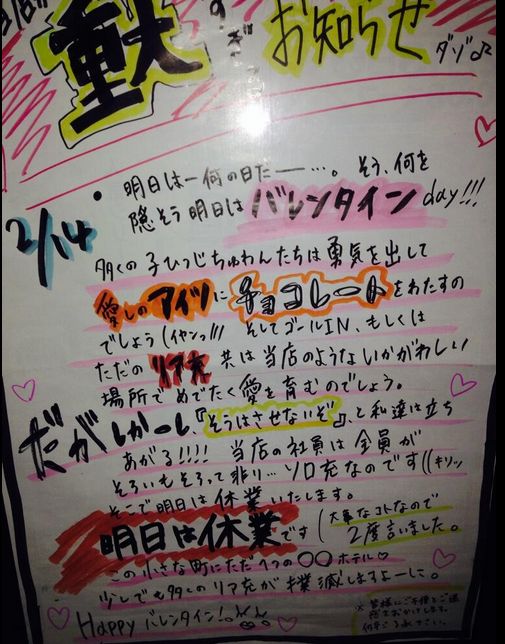 重大
すぎる
お知らせ
ダゾ♪
・明日は一何の日だ――…。そう、何を
隠そう明日はバレンタインday!!!
2/14
多くの子ひつじちゅわんたちは勇気を出して
愛しのアイツにチョコレートをわたすの
でしょう(イヤンっ!!! そしてゴールIN、もしくは
ただのリア充共は当店のようないかがわしい
場所でめでたく愛を育むのでしょう。
だがしかーし、『そうはさせないぞ』、と私達は立ち
あがる!!!! 当店の社員は全員が
そろいもそろって非リ…ソロ充なのです((キリッ
そこで明日は休業いたします。
明日は休業です(大事なコトなので
2度言いました。
この小さな町にただ1つの○○ホテル♡
少しでも多くのリア充が撲滅しますよーに。
Happyバレンタイン!
※皆様にご不便とご迷
惑をおかけします。